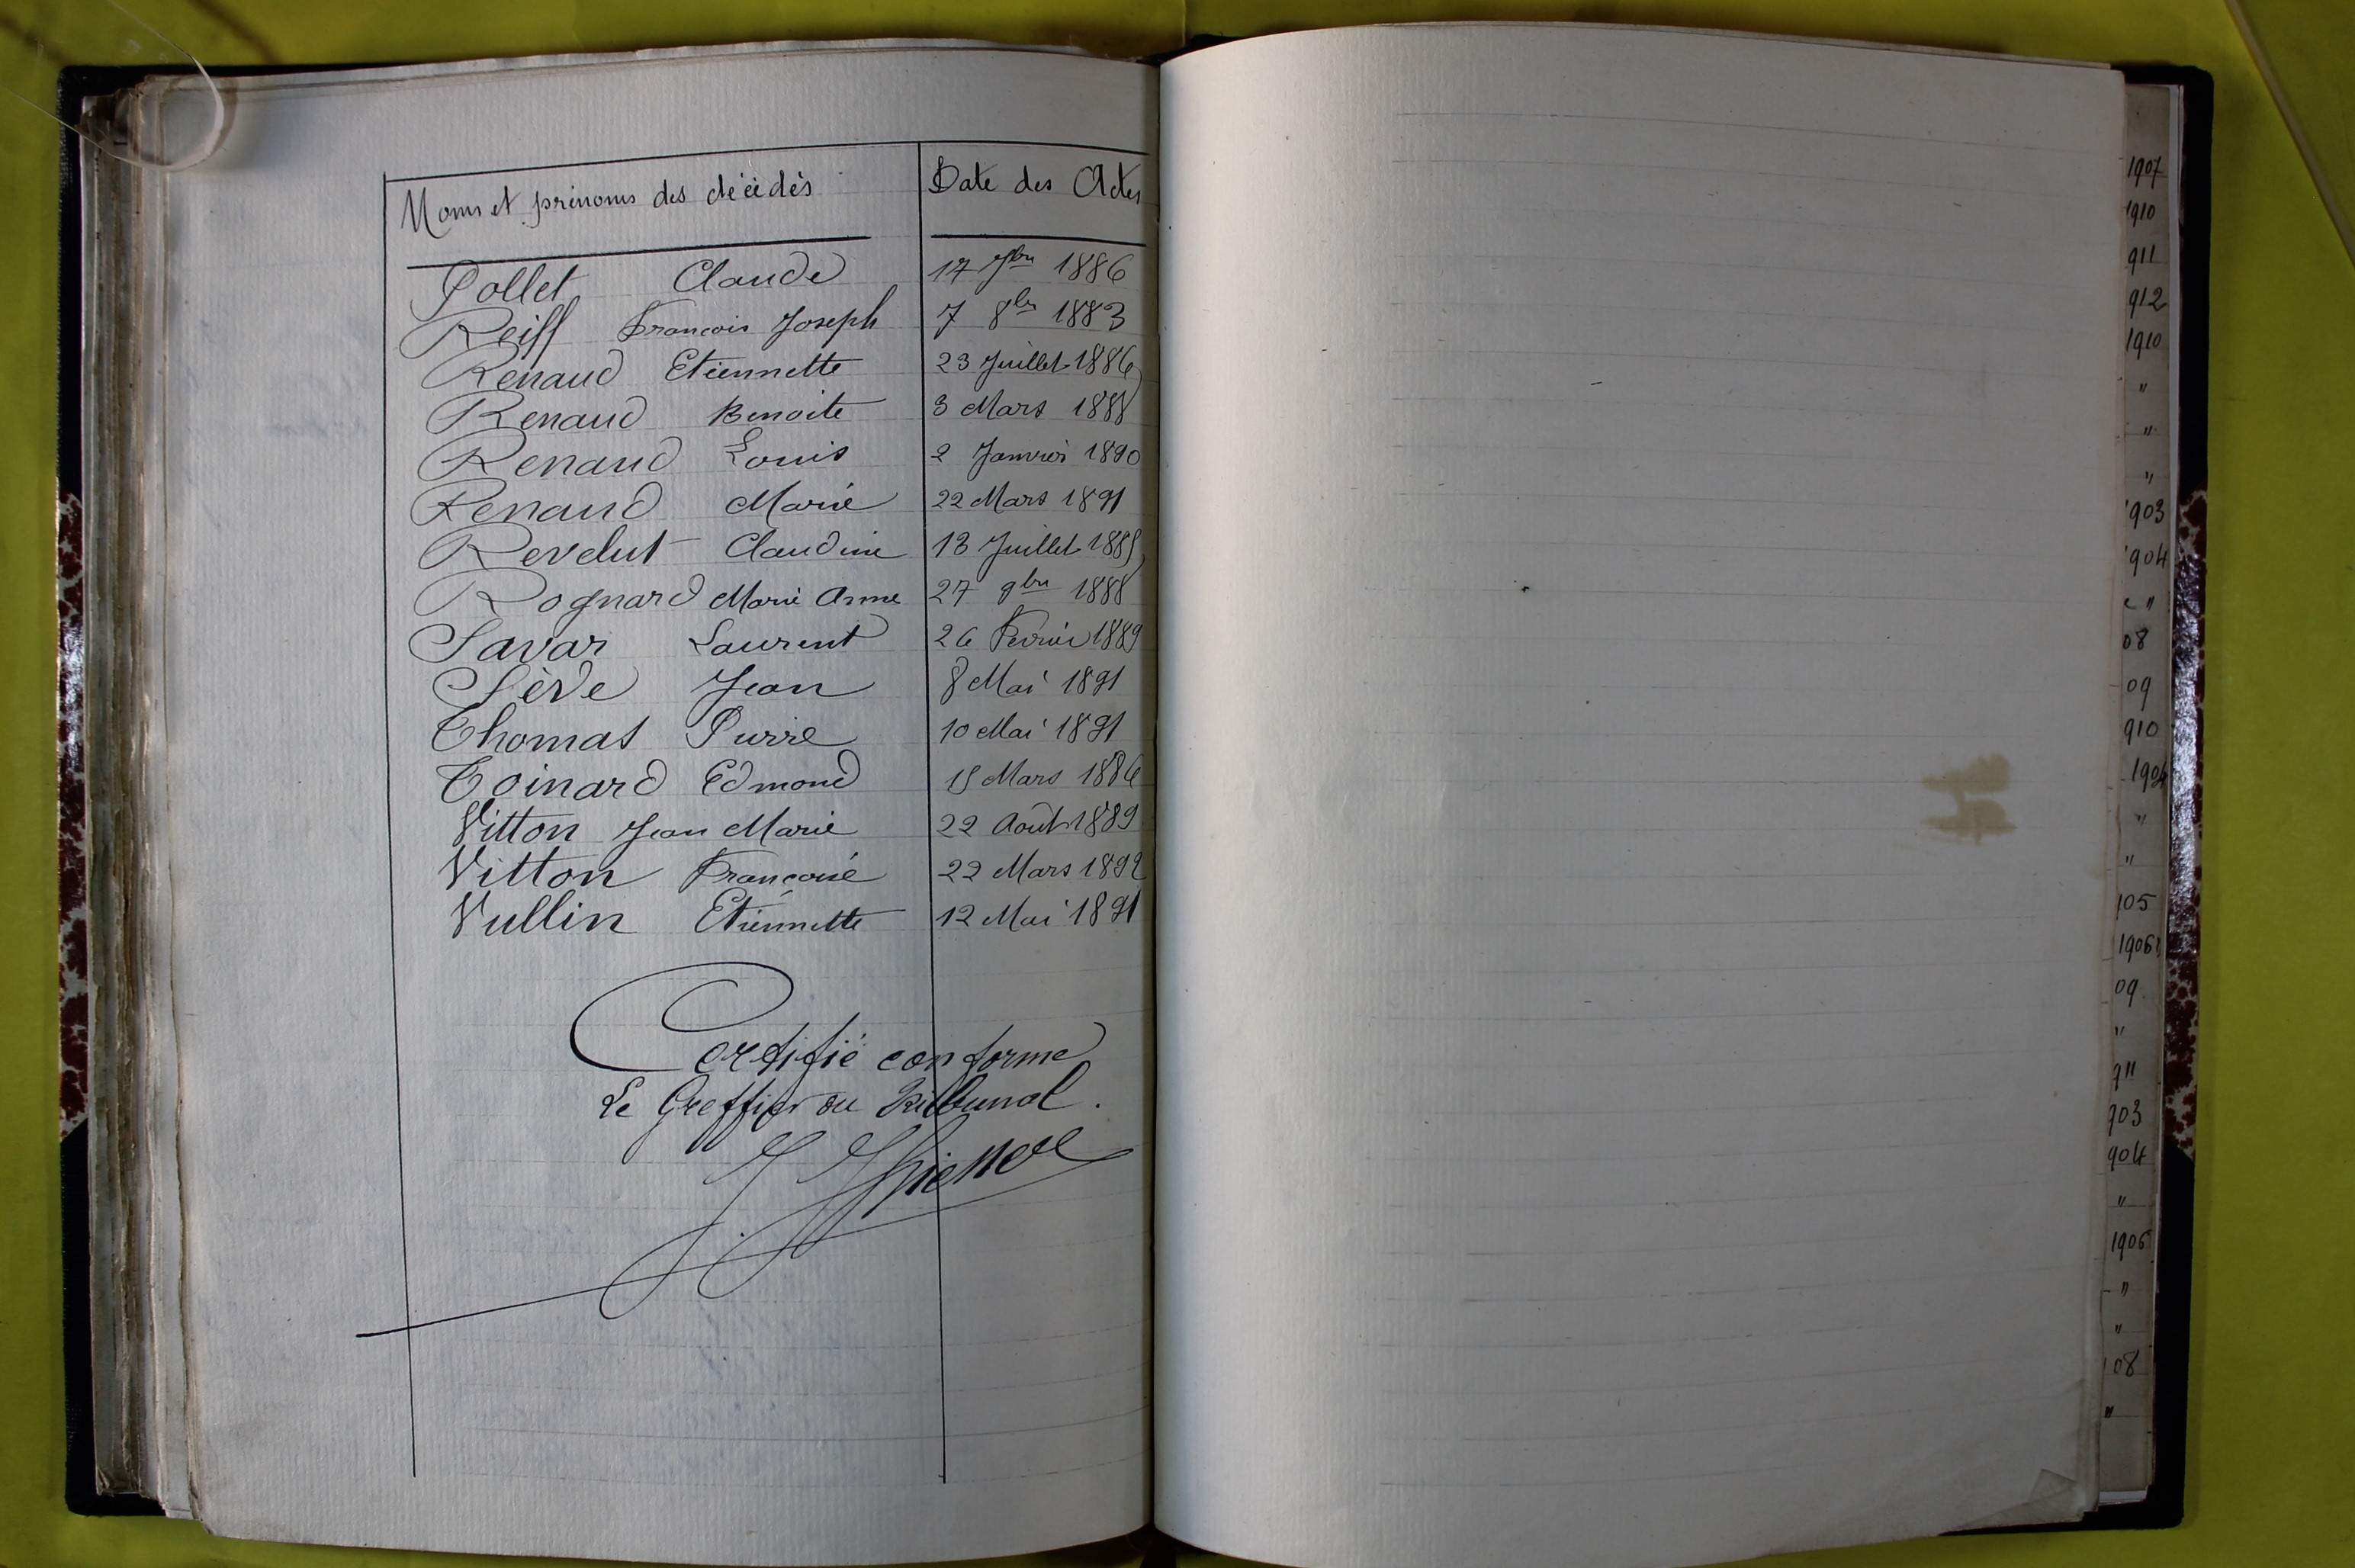 Noms et prénoms des décédés Date des Actes
Pollet Claude 17 7bre 1886
Reiff François Joseph 7 8bre 1883
Renaud Etiennette 23 Juillet 1886
Renaud Benoite 3 Mars 1888
Renaud Louis 2 Janvier 1890
Renaud Marie 22 Mars 1891
Revelut Claudine 13 Juillet 1885
Rognard Marie Anne 27 9bre 1888
Savar Laurent 26 Février 1889
Sève Jean 8 Mai 1891
Thomas Pierre 10 Mai 1891
Toinard Edmond 15 Mars 1886
Vitton Jean Marie 22 Août 1889
Vitton Françoise 22 Mars 1892
Vullin Etiennette 12 Mai 1891
Certifié conforme
Le Greffier du Tribunal.
1907
1910
911
912
1910
"
"
"
903
904
"
08
09
910
1904
"
"
105
1906
09
"
911
903
904
"
1906
"
"
08
"